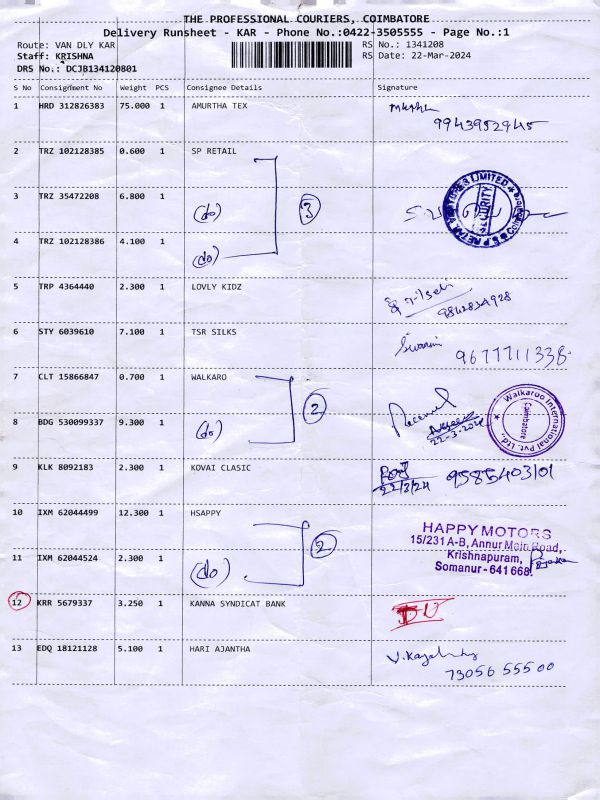 THE PROFESSIONAL COURIERS, COIMBATORE
Delivery Runsheet - KAR - Phone No.:0422-3505555 - Page No.:1
Route: VAN DLY KAR RS No.: 1341208
Staff: KRISHNA RS Date: 22-Mar-2024
DRS No.: DCJB134120801
S No Consignment No Weight PCS Consignee Details Signature
1 HRD 312826383 75.000 1 AMURTHA TEX
9943952945
2 TRZ 102128385 0.600 1 SP RETAIL
3 TRZ 35472208 6.800 1
(do) 3
4 TRZ 102128386 4.100 1
(do)
S.P. RETAIL VENTURES LIMITED
SECURITY
5 TRP 4364440 2.300 1 LOVLY KIDZ
9842834928
6 STY 6039610 7.100 1 TSR SILKS
9677711338
7 CLT 15866847 0.700 1 WALKARO
8 BDG 530099337 9.300 1
(do) 2
Received
22-3-2024
Walkaroo International Pvt. Ltd.,
Coimbatore
9 KLK 8092183 2.300 1 KOVAI CLASIC
22/3/24 9585403101
10 IXM 62044499 12.300 1 HSAPPY
11 IXM 62044524 2.300 1
(do) 2
HAPPY MOTORS
15/231 A-B, Annur Main Road,
Krishnapuram,
Somanur - 641 668.
12 KRR 5679337 3.250 1 KANNA SYNDICAT BANK
13 EDQ 18121128 5.100 1 HARI AJANTHA
73056 55500